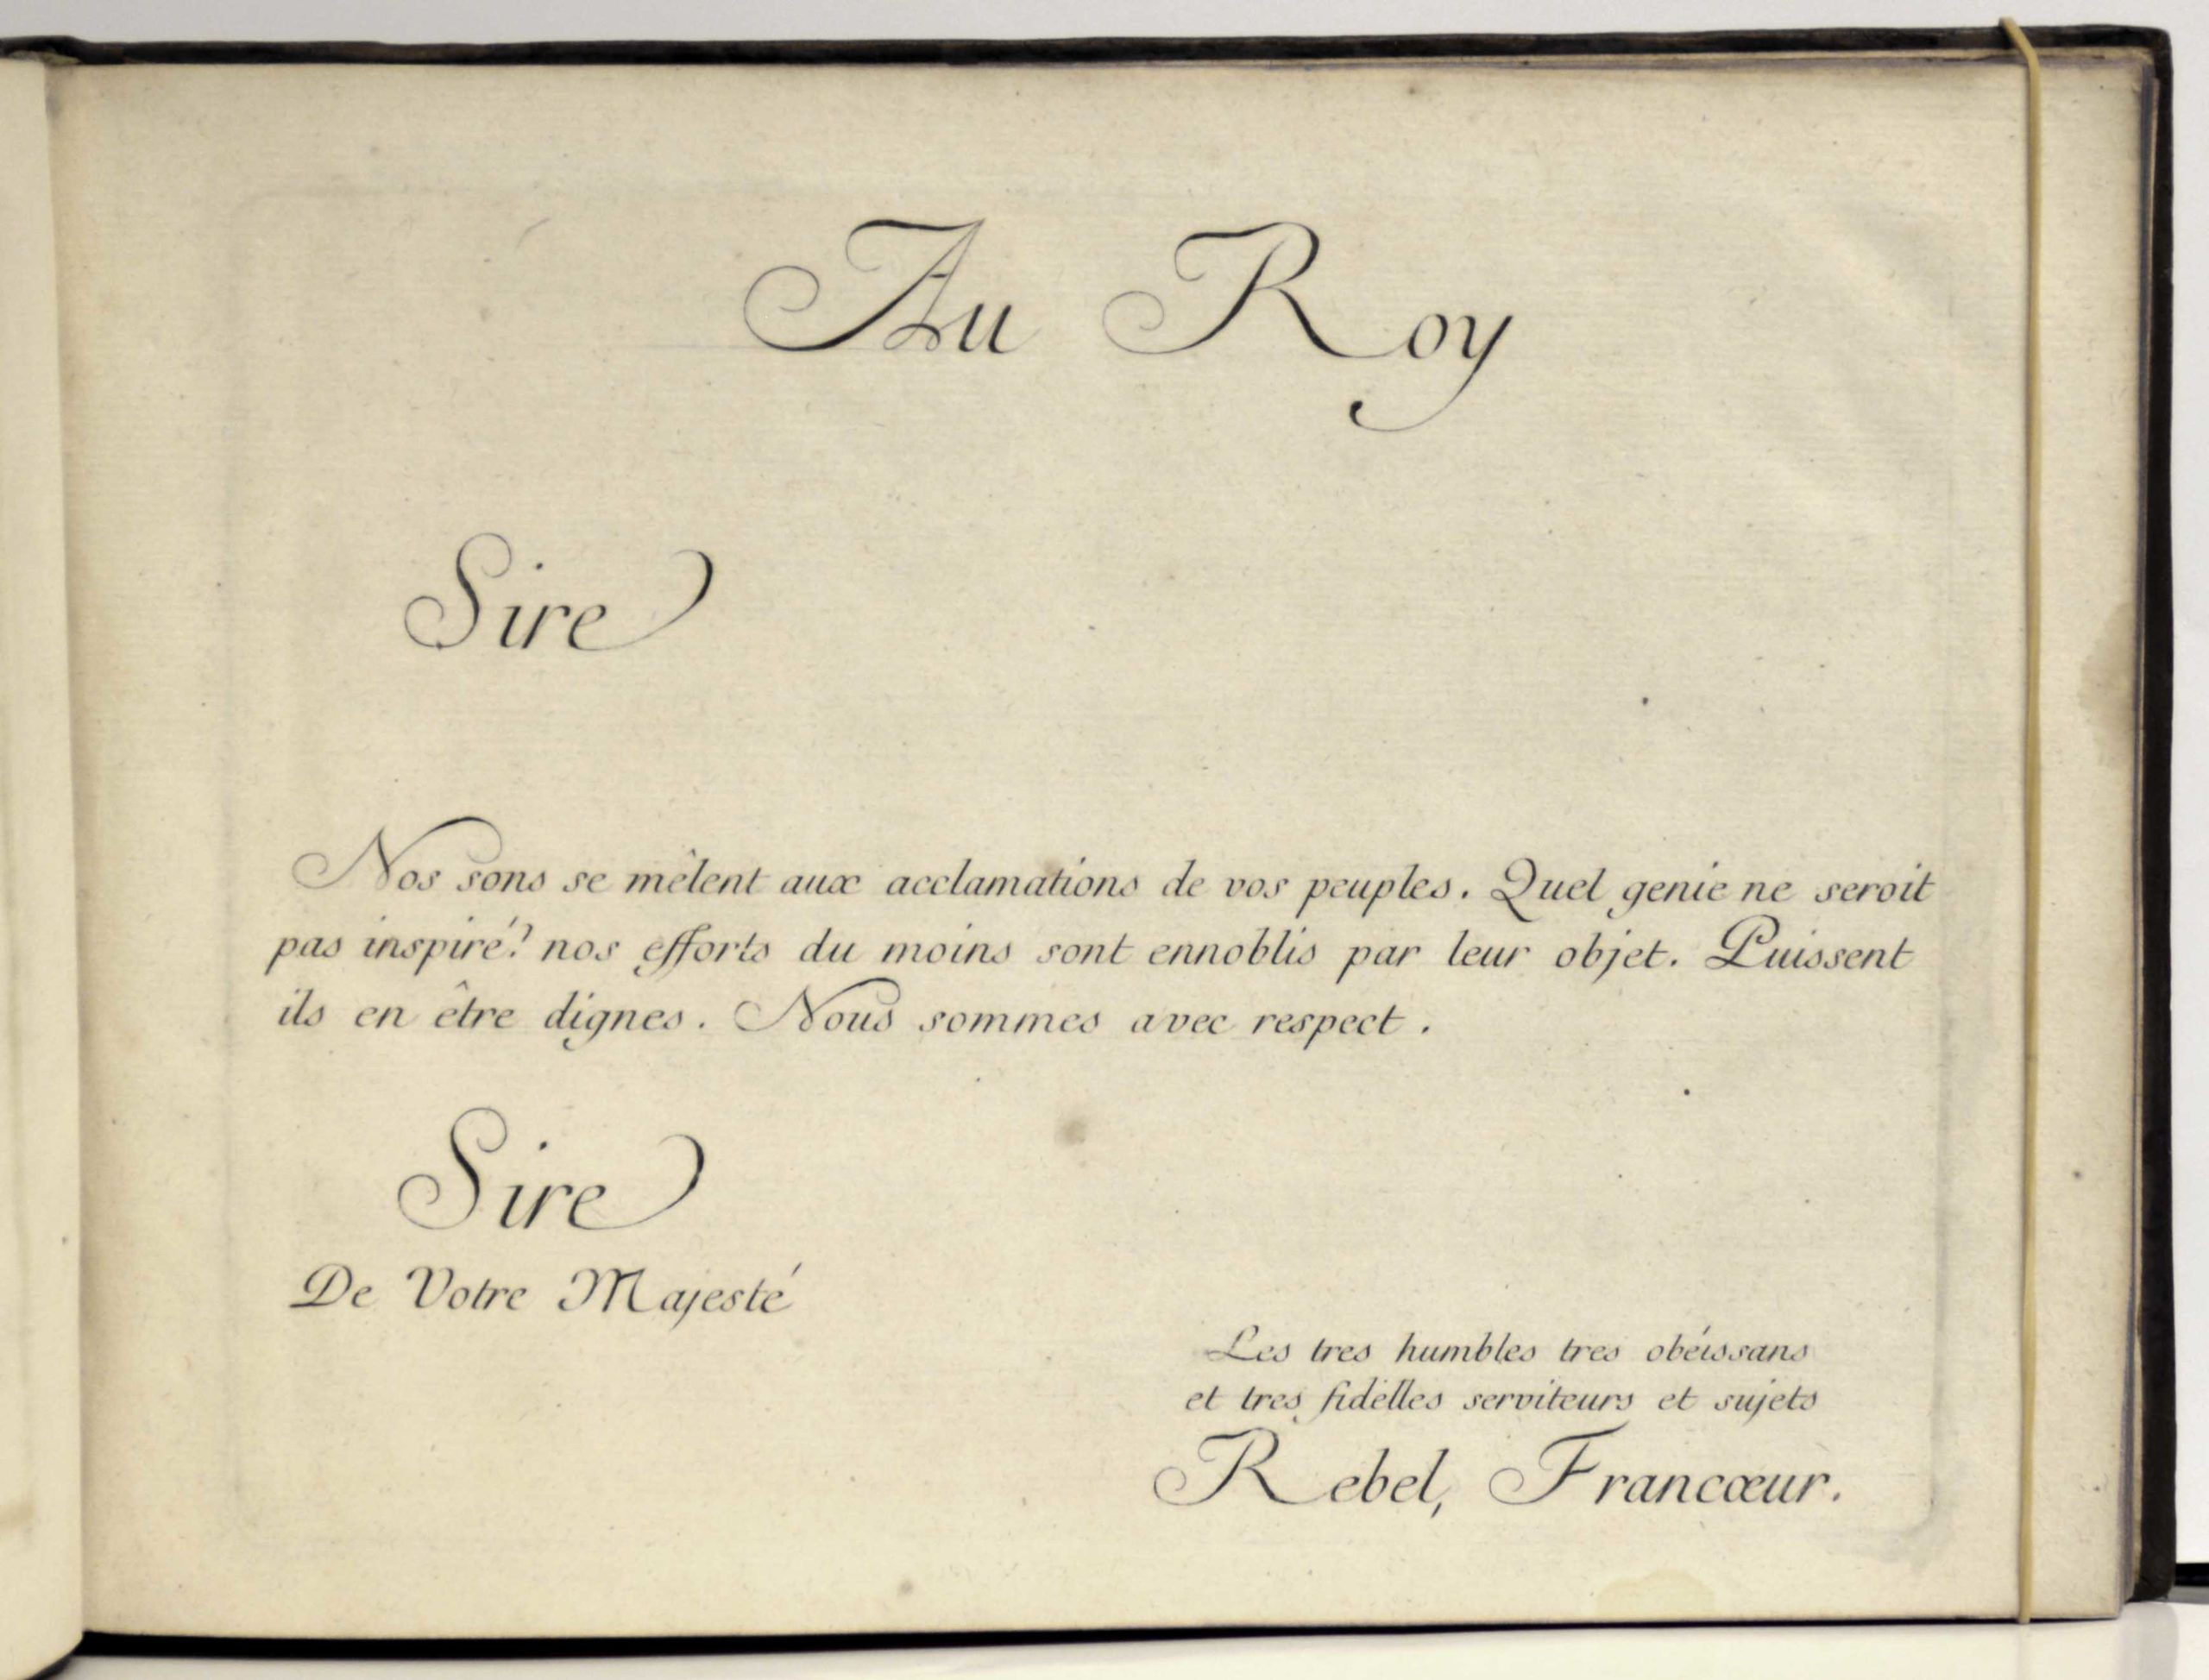 Au Roy
Sire
Nos sons se mêlent aux acclamations de vos peuples. Quel genie ne seroit
pas inspiré? nos efforts du moins sont ennoblis par leur objet. Puissent
ils en être dignes. Nous sommes avec respect.
Sire
De Votre Majesté
Les tres humbles tres obéissans
et tres fidélles serviteurs et sujets
Rebel, Francœur.